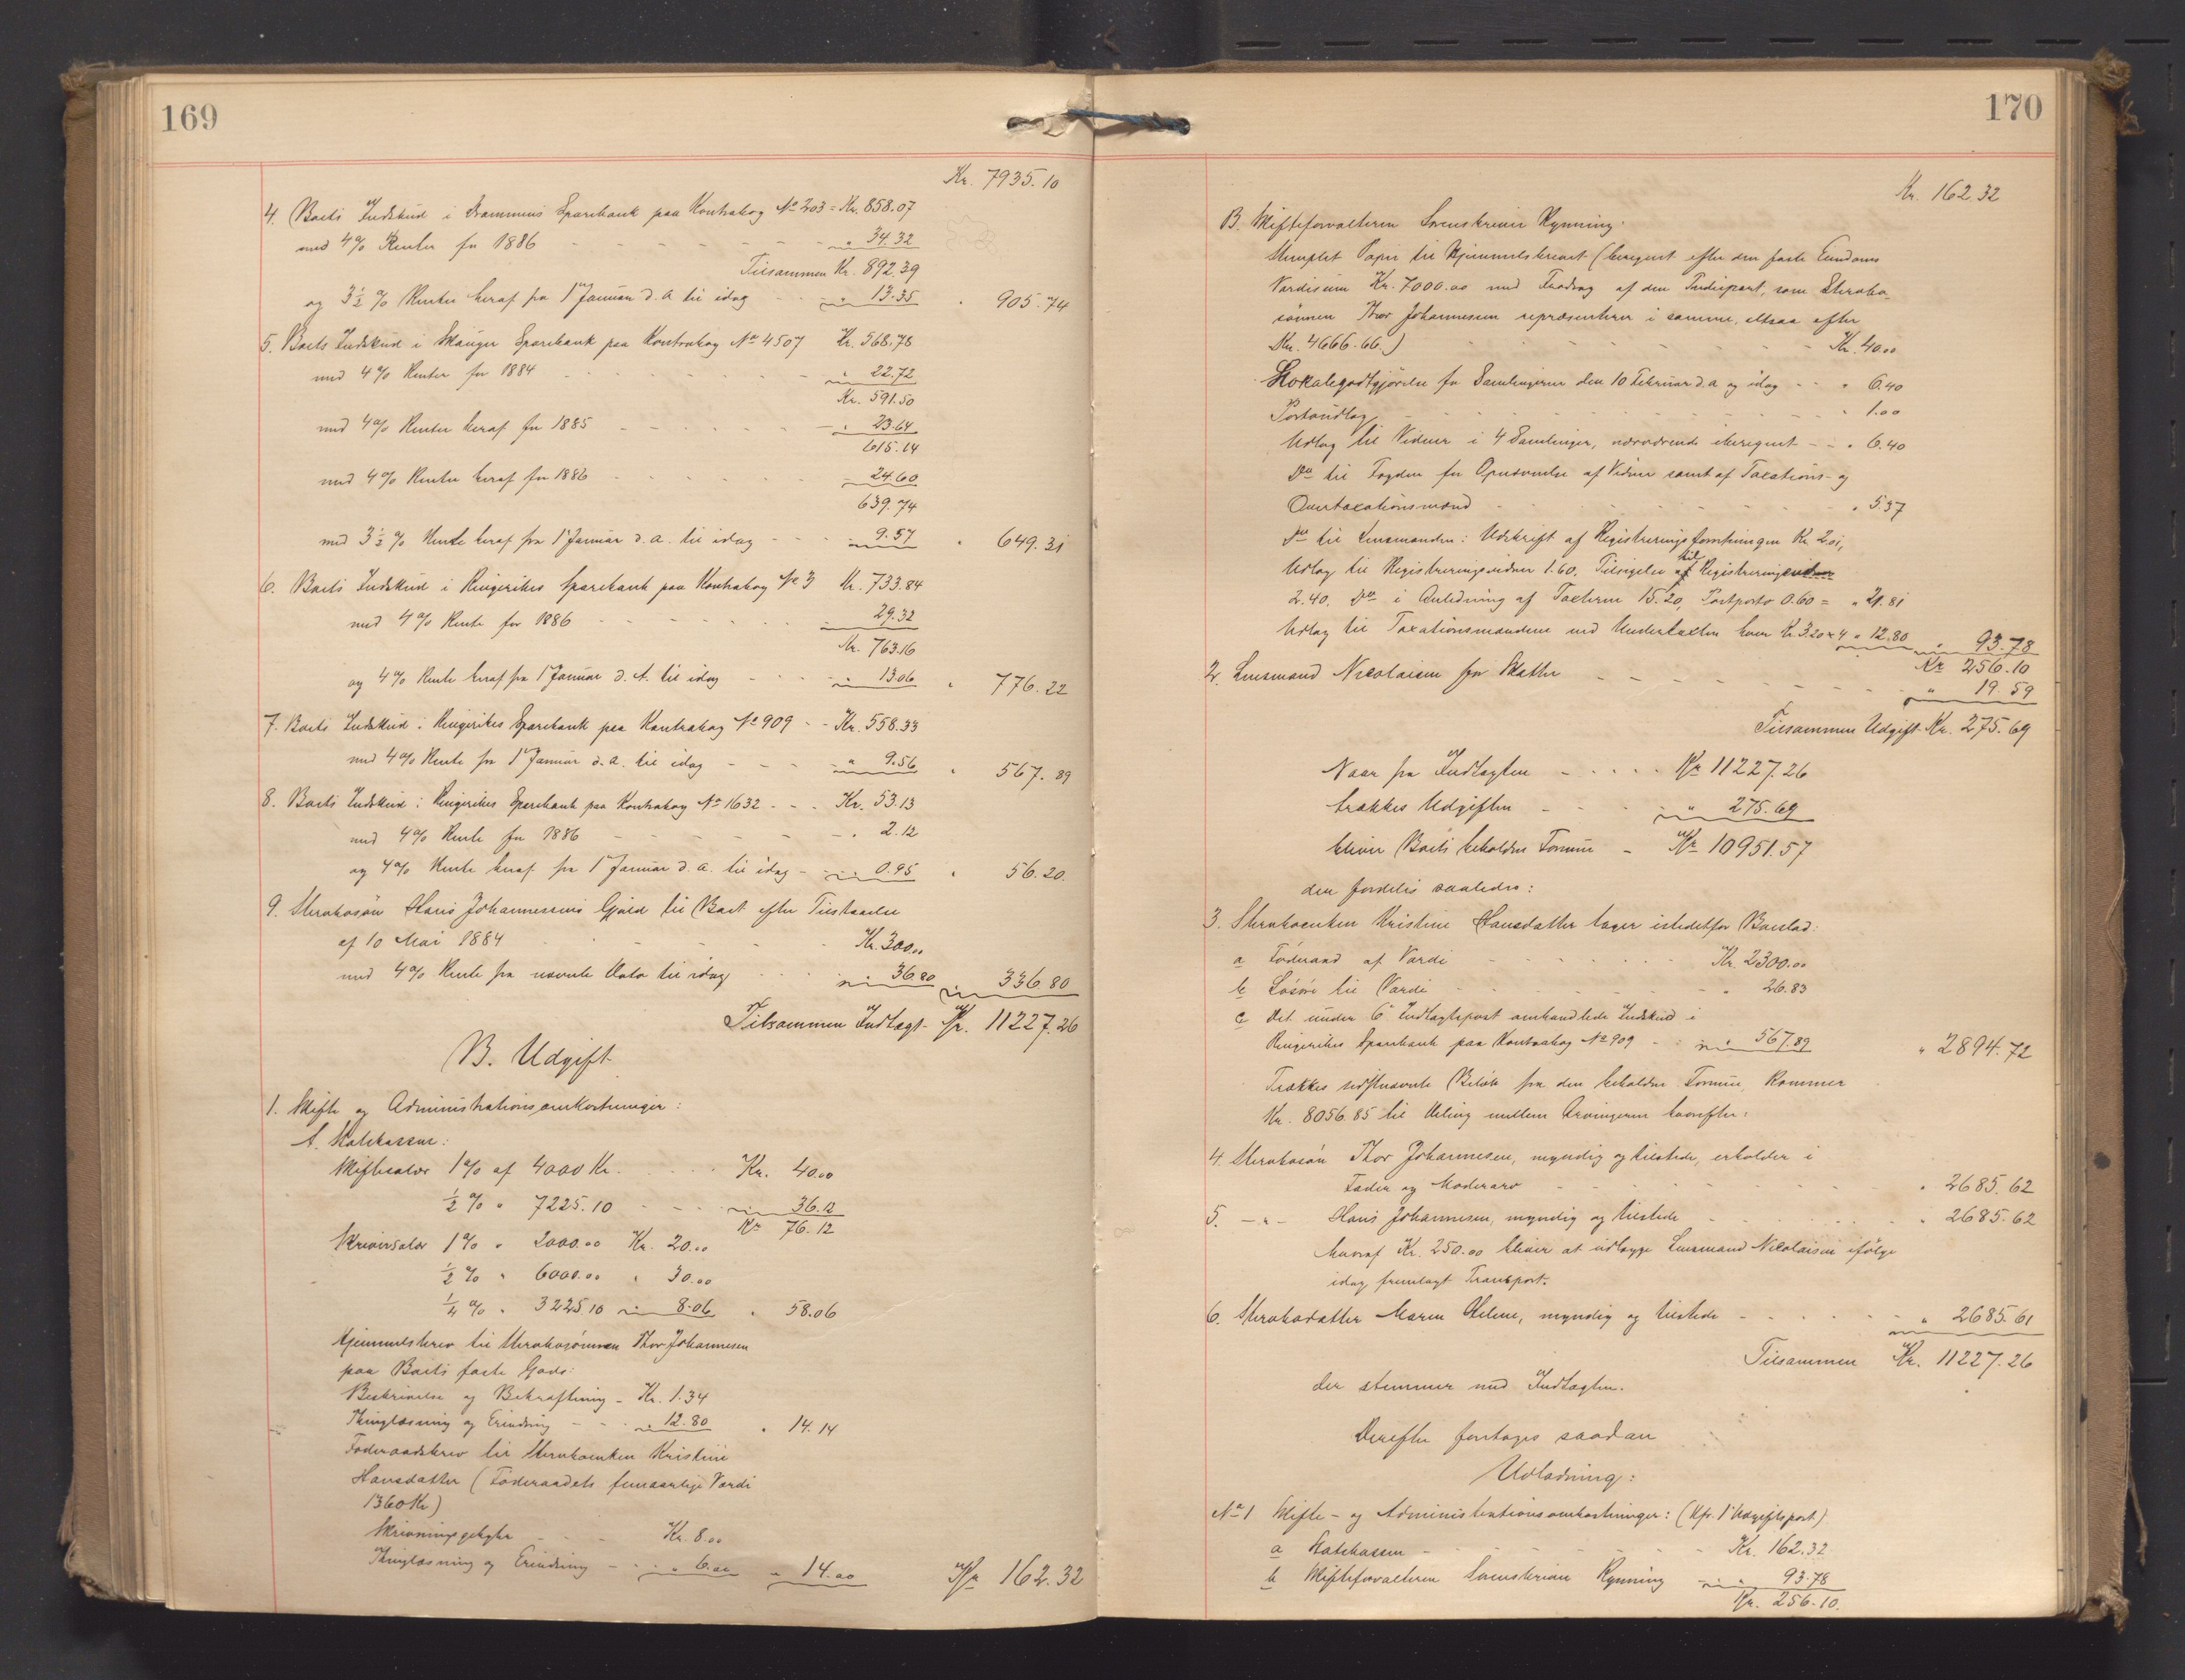 169
Kr. 7935.10
4. Boets Indskud i Drammens Sparebank paa Kontrabog No 203 = Kr. 858.07
med 4% Renter for 1886 - - - - - " 34.32
Tilsammen Kr. 892.39
og 3½ % Renter heraf fra 1 Januar d. A. til idag - - " 13.35 " 905.74
5. Boets Indskud i Skauger Sparebank paa Kontrabog No 4507 Kr. 568.78
med 4% Renter for 1884 - - - - " 22.72
Kr. 591.50
med 4% Renter heraf for 1885 - - - - " 23.64
615.14
med 4% Renter heraf for 1886 - - - - - 24.60
639.74
med 3½ % Rente heraf fra 1 Januar d. a. til idag - - - " 9.57 " 649.31
6. Boets Indskud i Ringerikes Sparebank paa Kontrabog No 3 Kr. 733.84
med 4% Rente for 1886 - - - - - 29.32
Kr. 763.16
og 4% Rente heraf fra 1 Januar d. A. til idag - - - " 13.06 " 776.22
7. Boets Indskud i Ringerikes Sparebank paa Kontrabog No 909 - - Kr. 558.33
med 4% Rente fra 1 Januar d. a. til idag - - - " 9.56 " 567.89
8. Boets Indskud i Ringerikes Sparebank paa Kontrabog No 1632 - - - Kr. 53.13
med 4% Rente for 1886 - - - - - " 2.12
og 4% Rente heraf fra 1 Januar d. a. til idag - " 0.95 " 56.20
9. Stervbosøn Hans Johannessens Gjæld til Boet efter Tilstaaelse
af 10 Mai 1884 - - - - Kr. 300.00
med 4% Rente fra nævnte Dato til idag - - - " 36.80 " 336.80
Tilsammen Indtægt - Kr. 11227.26
B. Udgift
1. Skifte og Administrationsomkostninger:
A. Statskassen:
Skiftesalær 1% af 4000 Kr. - - - Kr. 40.00
½ % " 7225.10 - - - " 36.12
Kr 76.12
Skriversalær 1% " 2000.00 Kr. 20.00
½ % " 6000.00 " 30.00
¼ % " 3225.10 " 8.06 " 58.06
Hjemmelsbrev til Stervbosønnen Thor Johannesen
paa Boets faste Gods:
Beskrivelse og Bekræftning - Kr. 1.34
Thinglæsning og Erindring - - " 12.80 " 14.14
Føderaadsbrev til Stervboenken Kristine
Hansdatter (Føderaadets femaarlige Værdi
1360 Kr)
Skrivningsgebyhr - - - Kr. 8.00
Thinglæsning og Erindring - - " 6.00 " 14.00 Kr 162.32
170
Kr. 162.32
B. Skifteforvalteren Sorenskriver Rynning.
Stemplet Papir til Hjemmelsbrevet (beregnet efter den faste Eiendoms
Værdisum Kr. 7000.00 med Fradrag af den Tredjepart, som Stervbo-
sønnen Thor Johannessen repræsenterer i samme, altsaa efter
Kr. 4666.66.) - - - - - Kr. 40.00
Lokalegodtgjørelse for Samlingerne den 10 Februar d. a og idag - - " 6.40
Portoudlæg - - - - - " 1.00
Udlæg til Vidner i 4 Samlinger, nærværende iberegnet - - " 6.40
Do til Fogden for Opnævnelse af Vidner samt af Taxations- og
Overtaxationsmænd - - - - - " 5.37
Do til Lensmanden: Udskrift af Registreringsforretningen Kr. 2.01,
Udlæg til Registreringsvidner 1.60. Tilsigelse til Registreringen
2.40. Do i Anledning af Taxterne 15.20, Postporto 0.60 = " 21.81
Udlæg til Taxationsmændene ved Undertaxten hver Kr. 3.20 x 4 " 12.80 " 93.78
Kr 256.10
2. Lensmand Nicolaisen for Skatter - - - - - " 19.59
Tilsammen Udgift Kr. 275.69
Naar fra Indtægten - - - - Kr 11227.26
trækkes Udgiften - - - - " 275.69
bliver Boets beholdne Formue - Kr 10951.57
der fordeles saaledes:
3. Stervboenken Kristine Hansdatter tager istedetfor Boeslod:
a Føderaad af Værdi - - - - - Kr. 2300.00
b Løsøre til Værdi - - - - - " 26.83
c Det under 6 Indtægtspost omhandlede Indskud i
Ringerikes Sparebank paa Kontrabog No 909 - - " 567.89 " 2894.72
Trækkes sidstnævnte Beløb fra den beholdne Formue, kommer
Kr. 8056.85 til Deling mellem Arvingerne hvorefter:
4. Stervbosøn Thor Johannesen, myndig og tilstede, erholder i
Fader og Moderarv - - - - - " 2685.62
5. - " - Hans Johannesen, myndig og tilstede - - - " 2685.62
hvoraf Kr. 250.00 bliver at udlægge Lensmand Nicolaisen ifølge
idag fremlagt Transport.
6. Stervbodatter Maren Helene, myndig og tilstede - - - - - " 2685.61
Tilsammen Kr. 11227.26
der stemmer med Indtægten.
Derefter foretoges saadan
Udlodning:
No 1 Skifte- og Administrationsomkostninger: (Kfr. 1 Udgiftspost)
a Statskassen - - - - - Kr. 162.32
b Skifteforvalteren Sorenskriver Rynning - " 93.78
Kr. 256.10.